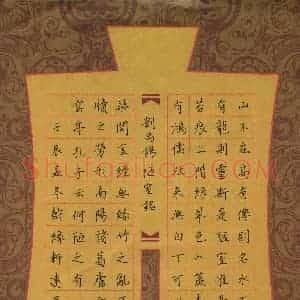 山不在高有仙則名水不
有龍則靈斯是陋室惟
苔痕上階綠草色入簾
有鴻儒往來無白丁可
劉禹錫陋室銘
琴閱金經無絲竹之亂
牘之勞形南陽諸葛廬
雲亭孔子云何陋之有
壬辰孟冬